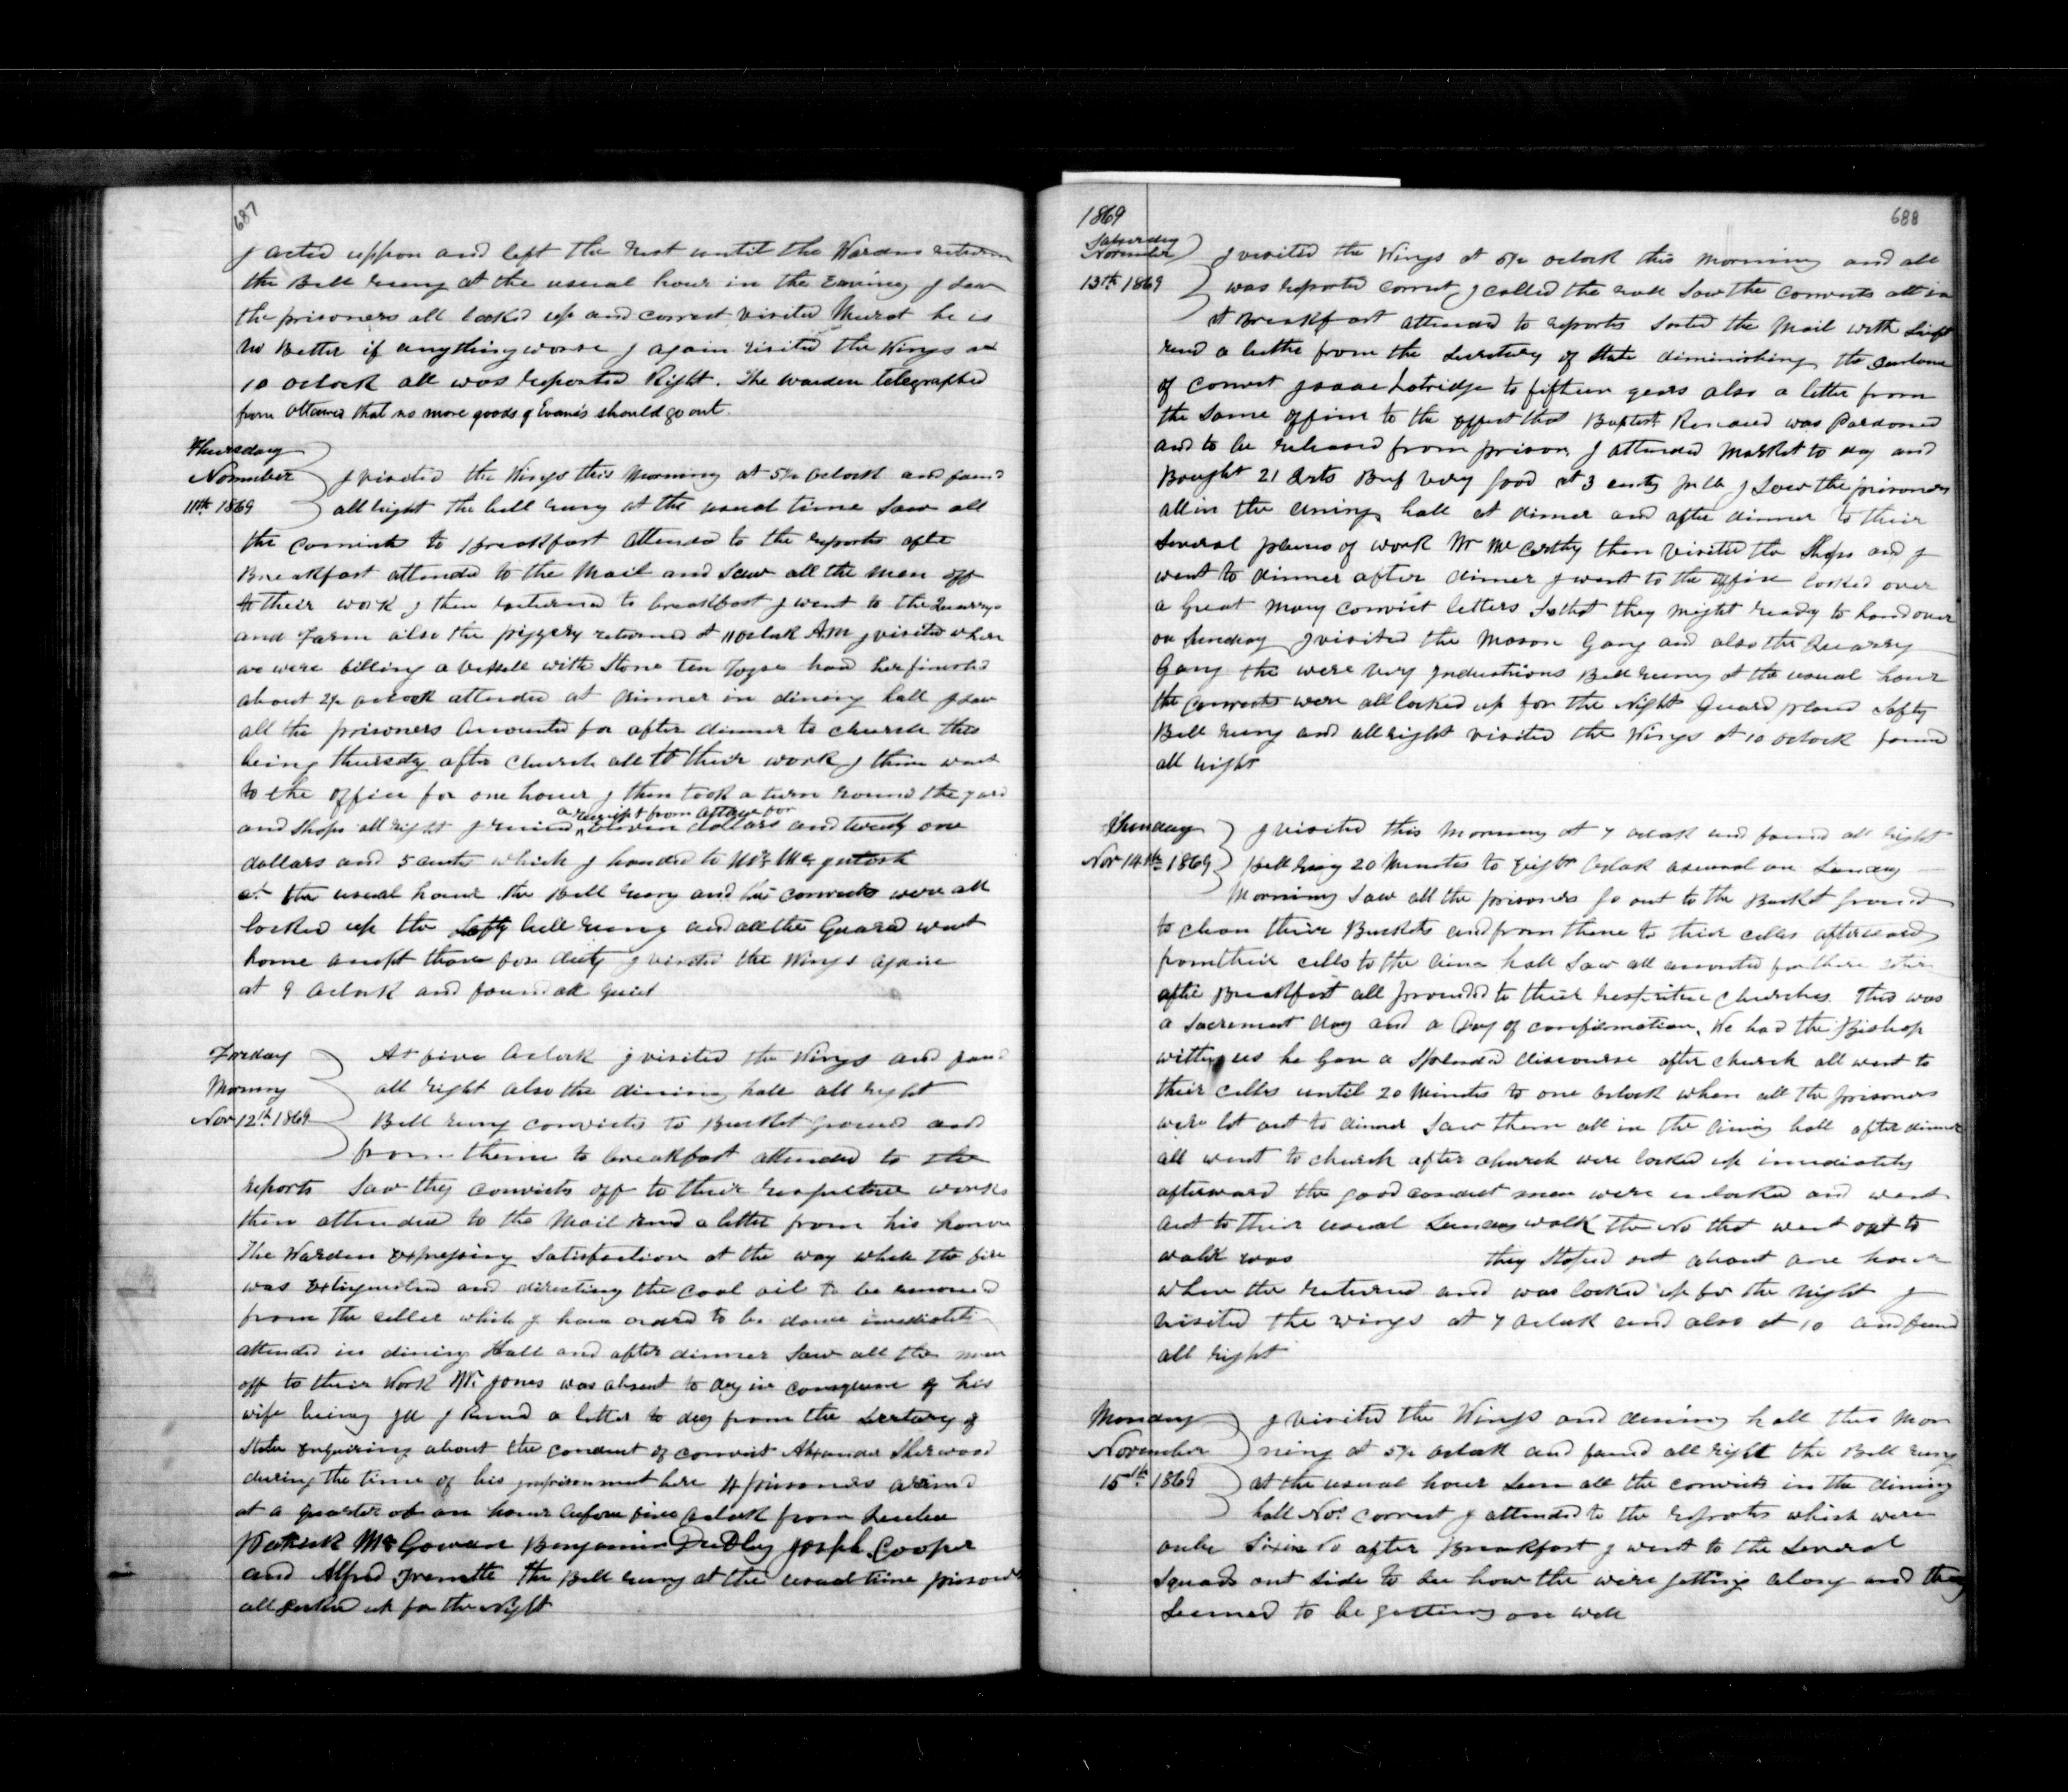 687
I acted uppon and left the rest until the Wardens return
the Bell rung at the usual hour in the Evening I saw
the prisoners all locked up and correct visited Murat he is
no Better if anything worse I again visited the Wings at
10 oclock all was reported Right. The warden telegraphed
from Ottawa that no more goods of Evans's should go out.
Thursday
November
11th 1869
I visited the Wings this Morning at 5½ oclock and found
all right the bell rung at the usual time Saw all
the convicts to breakfast attended to the reports after
Breakfast attended to the Mail and Saw all the men off
to their work I then returned to breakfast I went to the Quarry
and Farm also the piggery returned at 11 oclock A.M I visited where
we were filling a vessell with Stone ten Toyse had her finished
about 2½ oclock attended at dinner in dining hall I saw
all the prisoners accounted for after dinner to church this
being thursday after church all to their work I then went
to the office for one hour I then took a turn round the yard
a receipt from Ottawa for
and shops all right I received eleven dollars and twenty one
dollars and 5 cents which I handed to Mr
at the usual hour the Bell rung and the convicts were all
locked up the Safty bell rung and all the Guard went
home except those for duty I visited the Wings again
at 9 oclock and found all quiet
Friday
Morning
Nov 12th 1869
At five oclock I visited the Wings and found
all right also the dining hall all right
Bell rung convicts to Bucket ground and
from thence to breakfast attended to the
reports Saw they convicts off to their respective works
then attended to the Mail recd a letter from his honor
The Warden Expressing Satisfaction at the way which the fire
was Extinguished and directing the coal oil to be removed
from the celler which I have ordrd to be done imediatly
attended in dining Hall and after dinner Saw all the men
off to their Work Mr. Jones was absent to day in consequence of his
wife being ill I Recvd a letter to day from the Secretary of
State Enquiring about the conduct of convict Alexander Sherwood
during the time of his imprisonment here 4 prisoners arrived
at a quarter of an hour before five oclock from Quebec
Patrick McGowan Benjamin Joseph Cooper
and Alfred Frenette the Bell rung at the usual time prisoners
all Locked up for the Night
1869
688
Saturday
November
13th 1869
I visited the Wings at 5½ oclock this morning and all
was reported correct I called the roll Saw the convicts all in
at Breakfast attended to reports Sorted the Mail with Swift
recvd a letter from the Secretary of State diminishing the Sentence
of convict Isaac Lotridge to fifteen years also a letter from
the Same office to the Effect that Baptist Renaud was Pardoned
and to be released from prison I attended Market to day and
Bought 21 Qrts Beef very good at 3 cents pr lb I Saw the prisoners
all in the dining hall at dinner and after dinner to their
Several places of work Mr McCarthy then Visited the Shops and I
went to dinner after dinner I went to the office looked over
a great many convict letters So that they might ready to hand over
on Sunday I visited the Mason Gang and also the Quarry
Gang the were very industrious Bell rung at the usual hour
the convicts were all locked up for the Night Guard placed Safty
Bell rung and all right visited the Wings at 10 oclock found
all right
Sunday
Nov 14th 1869
I visited this Morning at 7 oclock and found all right
Bell rung 20 Minutes to Eight oclock as usual on Sunday
Morning Saw all the prisoners go out to the Bucket ground
to clean their Buckets and from thence to their cells afterwards
from their cells to the dining hall Saw all accounted for there
after Breakfast all proceeded to their respective Churches. This was
a Sacrement day and a Day of confirmation. We had the Bishop
with us he Gave a Splended discourse after church all went to
their cells until 20 Minutes to one oclock when all the prisoners
were let out to dinner Saw them all in the dining hall after dinner
all went to church after church were locked up imediately
afterward the good conduct men were unlocked and went
out to their usual Sunday walk the No that went out to
walk was they Stoped out about one hour
when the returned and was locked up for the Night I
visited the wings at 7 oclock and also at 10 and found
all right
Monday
November
15th 1869
I visited the Wings and dining hall this Mor
ning at 5½ oclock and found all right the Bell rung
at the usual hour Seen all the convicts in the dining
hall Nos correct I attended to the reports which were
only in No after Breakfast I went to the Several
Squads out side to See how the were getting along and they
Seemed to be getting on well